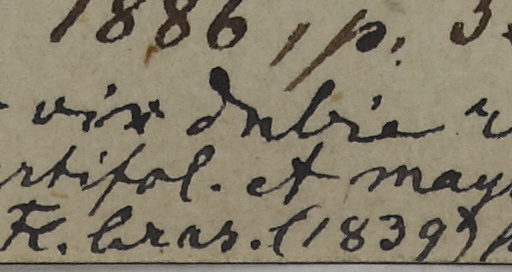 1886, p. 3
vix dubie
rtifol. et may
Fl. bras. (1839) p